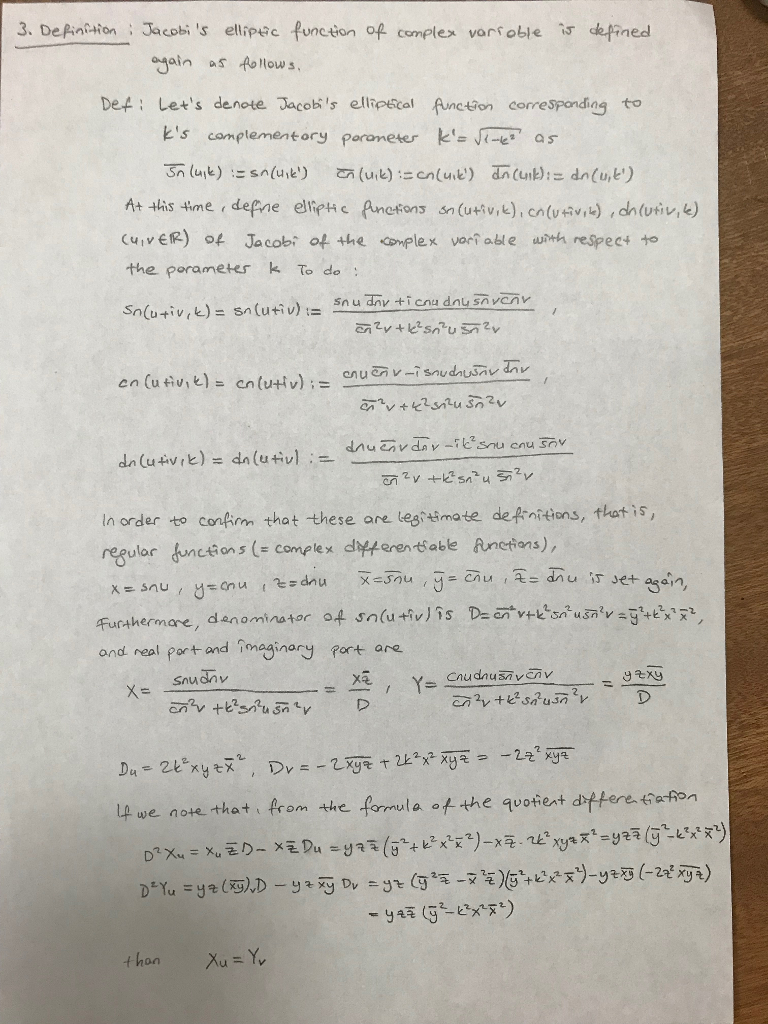 3. Definition : Jacobi's elliptic function of complex variable is defined
again as follows.
Def : Let's denote Jacobi's elliptical function corresponding to
k's complementary parameter k' = √1-k² as
s̅n̅(u,k) := sn(u,k') c̅n̅(u,k) := cn(u,k') d̅n̅(u,k) := dn(u,k')
At this time, define elliptic functions sn(u+iv,k), cn(u+iv,k), dn(u+iv,k)
(u,v∈ℝ) of Jacobi of the complex variable with respect to
the parameter k To do :
sn(u+iv,k) = sn(u+iv) := (snu d̅n̅v + i cnu dnu s̅n̅v c̅n̅v) / (c̅n̅²v + k²sn²u s̅n̅²v) ,
cn(u+iv,k) = cn(u+iv) := (cnu c̅n̅v - i snu dnu s̅n̅v d̅n̅v) / (c̅n̅²v + k²sn²u s̅n̅²v) ,
dn(u+iv,k) = dn(u+iv) := (dnu c̅n̅v d̅n̅v - ik²snu cnu s̅n̅v) / (c̅n̅²v + k²sn²u s̅n̅²v)
In order to confirm that these are legitimate definitions, that is,
regular functions (= complex differentiable functions),
x = snu , y = cnu , z = dnu x̅ = s̅n̅u , y̅ = c̅n̅u , z̅ = d̅n̅u is set again,
Furthermore, denominator of sn(u+iv) is D = c̅n̅²v + k²sn²u s̅n̅²v = y̅² + k²x²x̅²,
and real part and imaginary part are
X = (snu d̅n̅v) / (c̅n̅²v + k²sn²u s̅n̅²v) = xz̅ / D , Y = (cnu dnu s̅n̅v c̅n̅v) / (c̅n̅²v + k²sn²u s̅n̅²v) = yz x̅y̅ / D
Du = 2k²xyzx̅² , Dv = -2x̅y̅z̅ + 2k²x² x̅y̅z̅ = -2z² x̅y̅z̅
If we note that, from the formula of the quotient differentiation
D²Xu = xu z̅D - xz̅Du = yzz̅(y̅² + k²x²x̅²) - xz̅·2k²xyzx̅² = yzz̅(y̅² - k²x²x̅²)
D²Yu = yz(x̅y̅)ᵥD - yz x̅y̅ Dv = yz(y̅²z̅ - x̅²z̅)(y̅² + k²x²x̅²) - yzx̅y̅(-2z² x̅y̅z̅)
= yzz̅(y̅² - k²x²x̅²)
than Xu = Yv